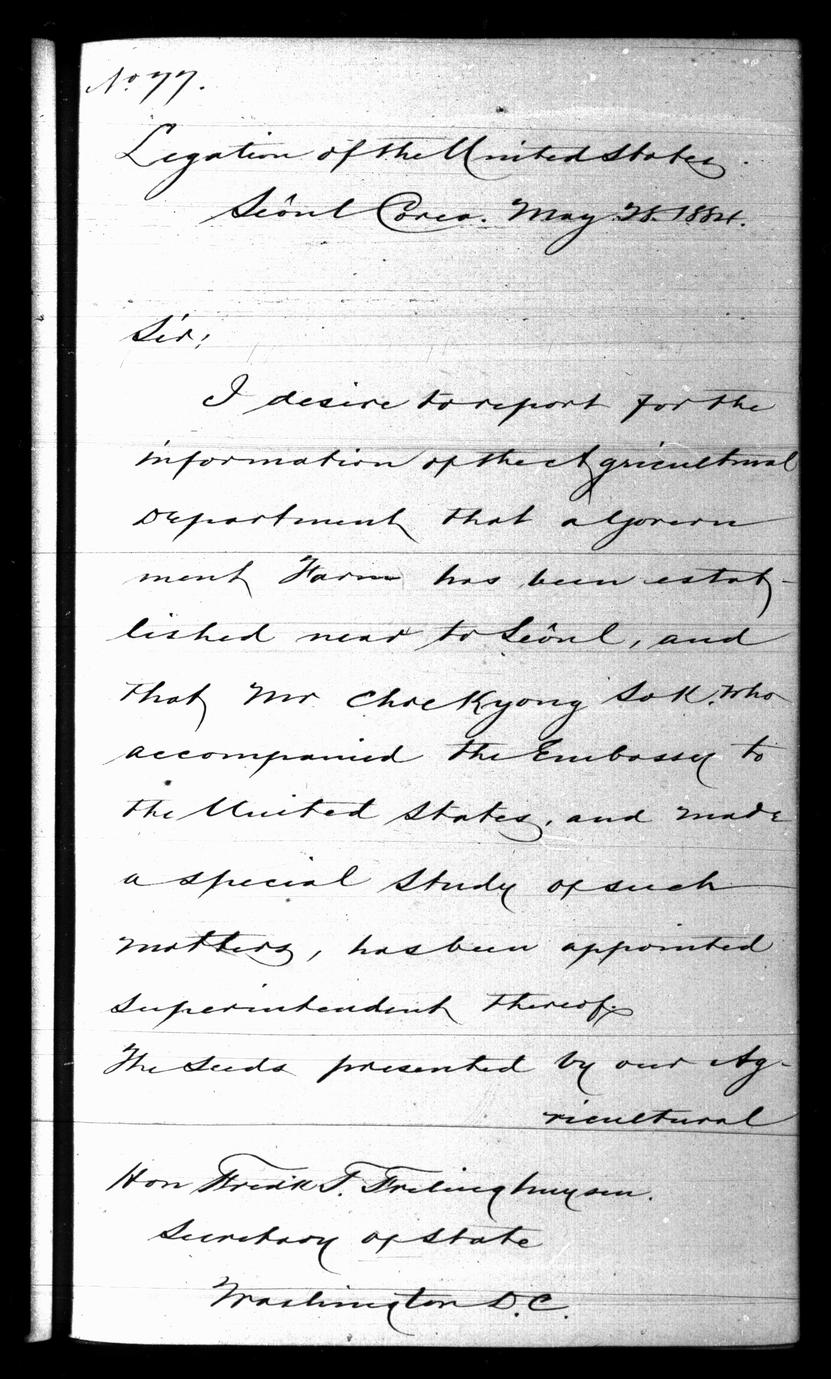 No 77.
Legation of the United States.
Seôul Corea. May 28. 1884.
Sir;
I desire to report for the
information of the Agricultural
Department that a Govern
ment Farm has been estab-
lished near to Seôul, and
that Mr Choe Kyong Sok. who
accompanied the Embassy to
the United States, and made
a special study of such
matters, has been appointed
superintendent thereof.
The seeds presented by our Ag-
ricultural
Hon Fredk T. Frelinghuysen.
Secretary of State
Washington D.C.